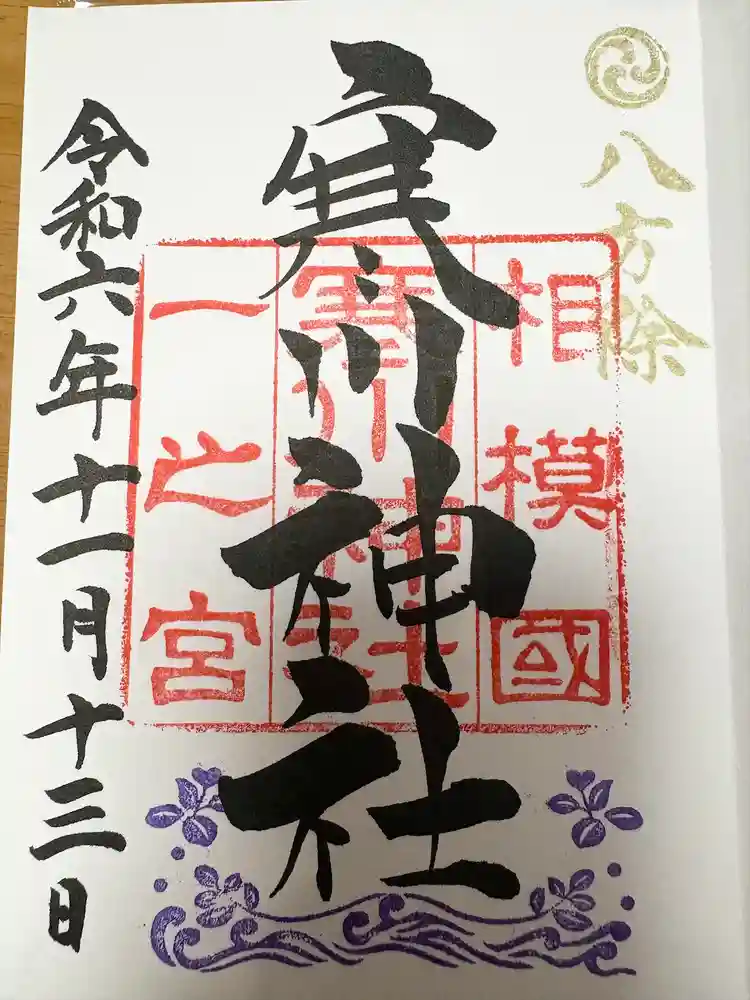 八方除
寒川神社
相模國
寒川神社
一之宮
令和六年十一月十三日